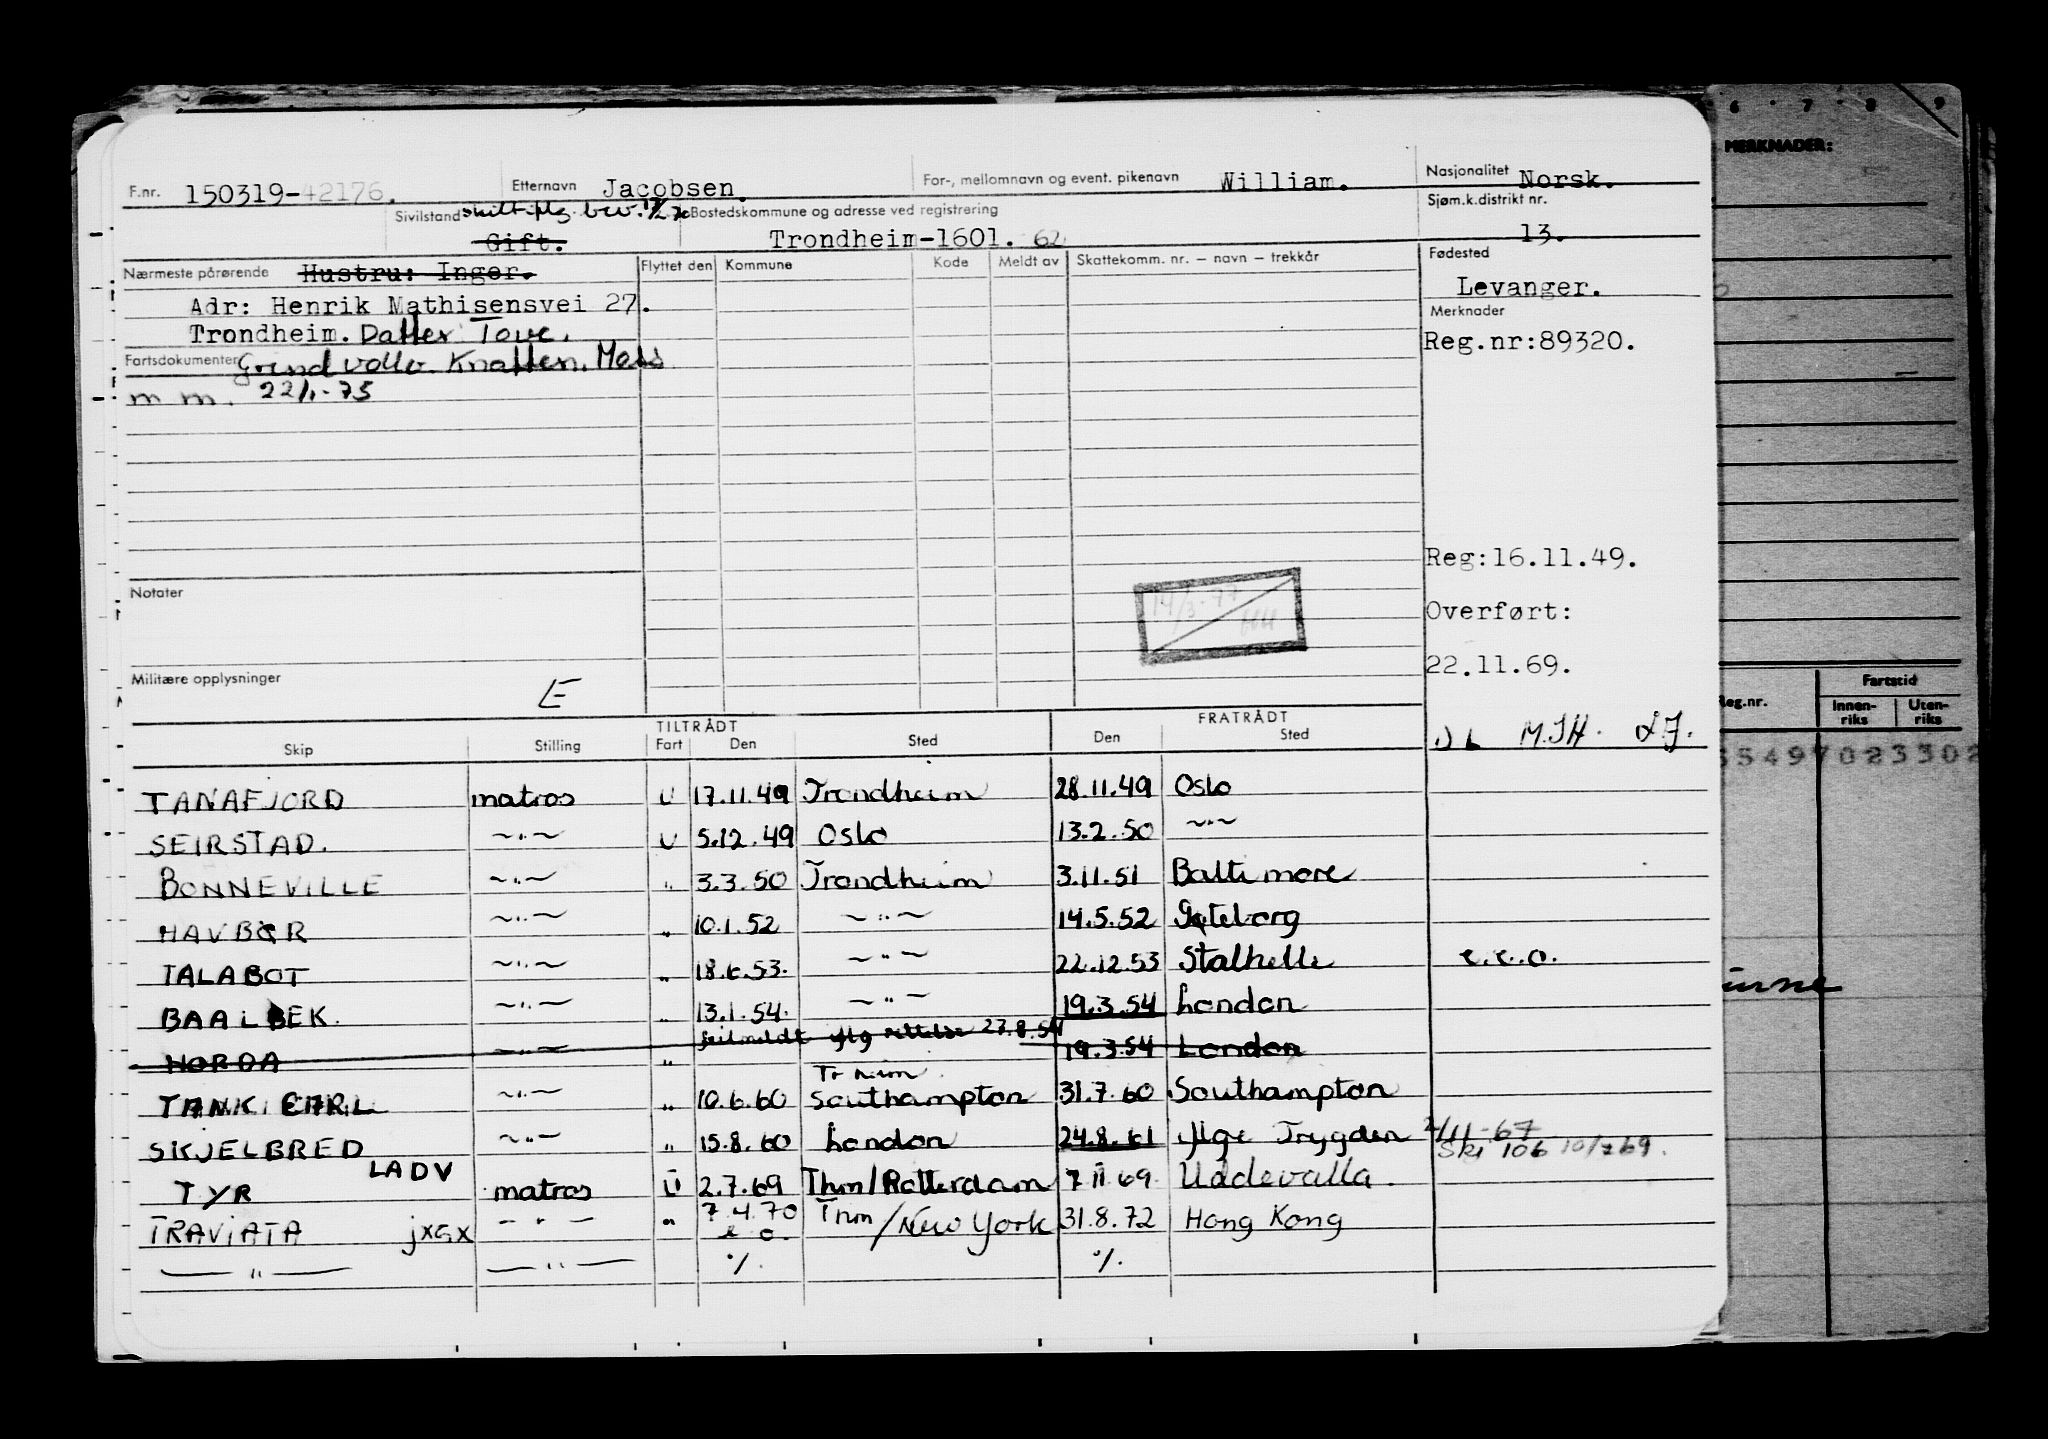 F.nr. 150319-42176. Etternavn Jacobsen. For-, mellomnavn og event. pikenavn William. Nasjonalitet Norsk.
Sivilstand skilt iflg. bev. Gift. Bostedskommune og adresse ved registrering Trondheim-1601. 62 Sjøm.k.distrikt nr. 13.
Nærmeste pårørende Hustru: Inger. Flyttet den Kommune Kode Meldt av Skattekomm. nr. – navn – trekkår Fødested
Adr: Henrik Mathisensvei 27. Levanger.
Trondheim. Datter Tove. Merknader
Fartsdokumenter Grindvoll Knatten. Reg.nr:89320.
m m. 22/1-75
Reg:16.11.49.
Notater Overført:
14/3-77
22.11.69.
Militære opplysninger E
TILTRÅDT FRATRÅDT
Skip Stilling Fart Den Sted Den Sted M.JH. L.J.
TANAFJORD matros U 17.11.49 Trondheim 28.11.49 Oslo
SEIRSTAD. ~"~ U 5.12.49 Oslo 13.2.50 ~"~
BONNEVILLE ~"~ " 3.3.50 Trondheim 3.11.51 Baltimore
HAVBØR ~"~ " 10.1.52 ~"~ 14.5.52 Gøteborg
TALABOT ~"~ " 18.6.53. ~"~ 22.12.53 Stathelle e.r.o.
BAALBEK. ~"~ " 13.1.54. ~"~ 19.3.54 London
HORDA ~"~ " feilmeldt iflg rettelse 27.8.54 19.3.54 London
TANK EARL ~"~ " 10.6.60 Tr heim Southampton 31.7.60 Southampton
SKJELBRED ~"~ " 15.8.60 London 24.8.61 iflge Trygden 2/11-67
Ski 106 10/7 69.
TYR LADV matros U 2.7.69 Thm/Rotterdam 7 11 69. Uddevalla.
TRAVIATA JXGX – " – " 7.4.70 Thm/New York 31.8.72 Hong Kong
— " — — " — %. %.
6 . 7 . 8 . 9
MERKNADER:
Reg.nr. Fartstid
Innenriks Utenriks
549702330